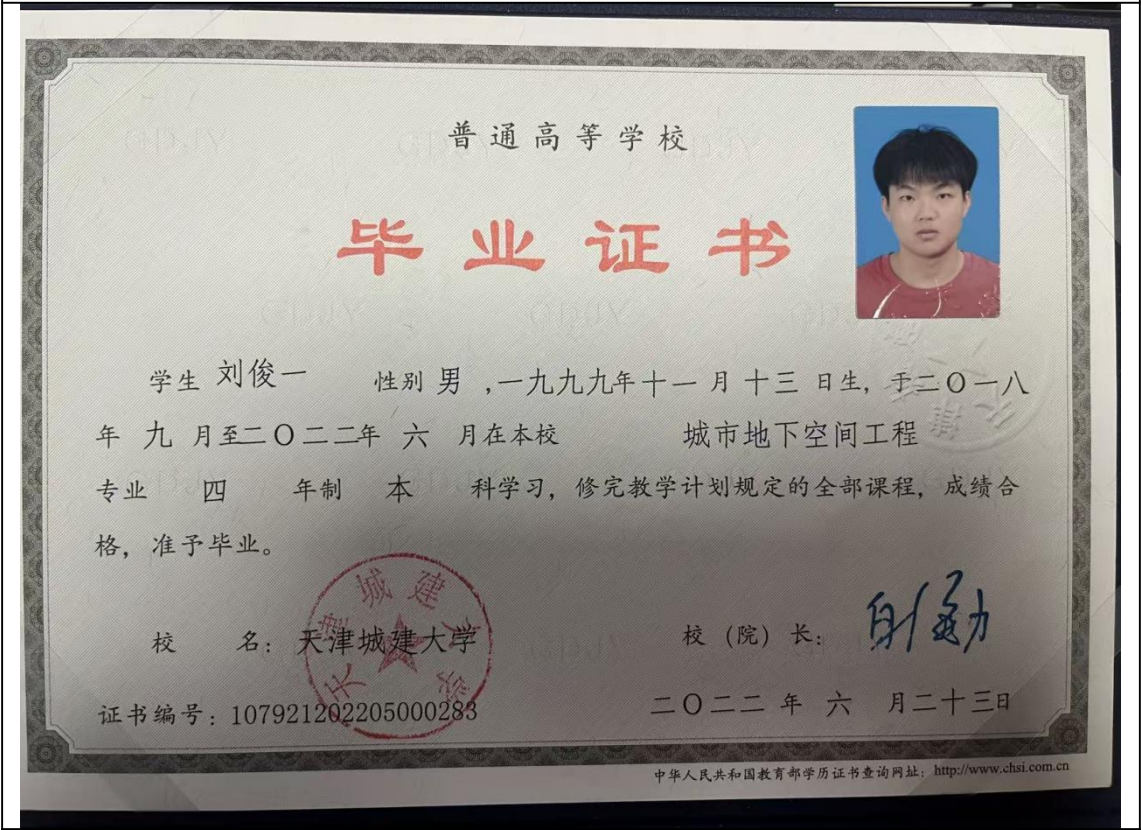 普通高等学校
毕业证书
学生 刘俊一 性别 男 ,一九九九年十一月十三日生, 于二〇一八
年九月至二〇二二年六月在本校 城市地下空间工程
专业 四 年制 本 科学习, 修完教学计划规定的全部课程, 成绩合
格, 准予毕业。
天津城建大学
校 名: 天津城建大学
校(院)长:
证书编号: 107921202205000283
二〇二二年六月二十三日
中华人民共和国教育部学历证书查询网址: http://www.chsi.com.cn